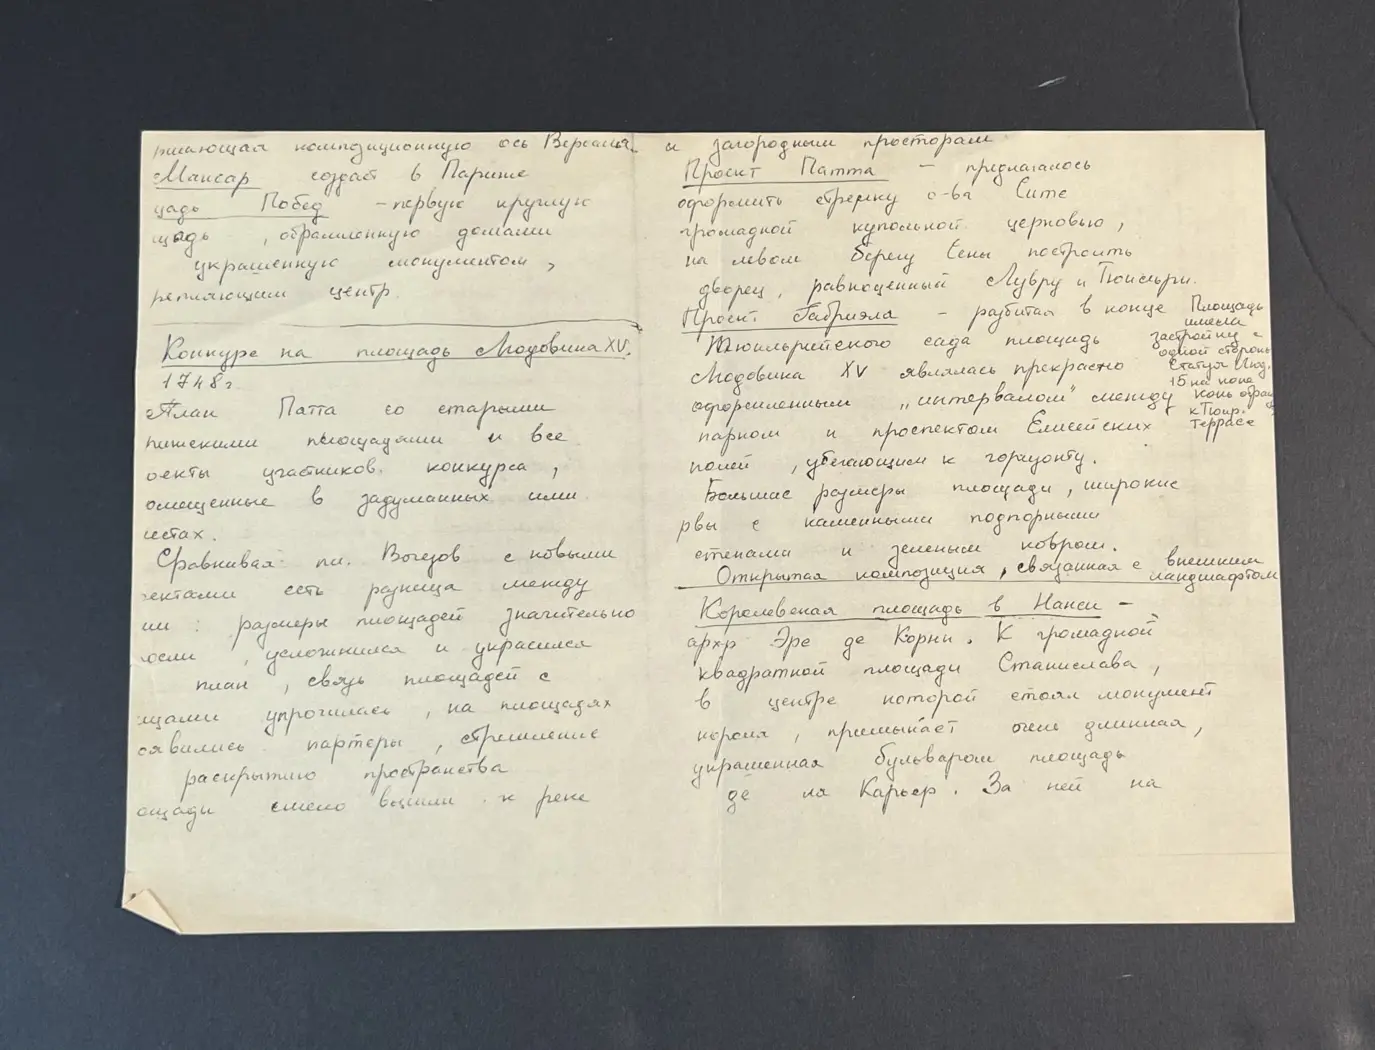 ршающая композиционную ось Версаля.
Мансар создаёт в Париже
щадь Побед – первую круглую
щадь, обрамленную домами
украшенную монументом,
репляющим центр.
Конкурс на площадь Людовика XV.
1748г.
План Патта со старыми
пижскими площадями и все
оекты участников конкурса,
омещенные в задуманных ими
местах.
Сравнивая пл. Вогезов с новыми
оектами есть разница между
ми: размеры площадей значительно
осли, усложнился и украсился
план, связь площадей с
ицами упрочилась, на площадях
оявились партеры, стремление
раскрытию пространства
ощади смело вышли к реке
и загородным просторам
Проект Патта – предлагалось
оформить стрелку о-ва Сите
громадной купольной церковью,
на левом берегу Сены построить
дворец, равноценный Лувру и Тюильри.
Проект Габриэла – разбитая в конце
Тюильрийского сада площадь
Людовика XV являлась прекрасно
оформленным „интервалом" между
парком и проспектом Елисейских
полей, убегающим к горизонту.
Большие размеры площади, широкие
рвы с каменными подпорными
стенами и зеленым ковром.
Открытая композиция, связанная с внешним
ландшафтом
Площадь
имела
застройку с
одной стороны
Статуя Люд.
15 на коне
конь обращ
к Тюир.
террасе
Королевская площадь в Нанси –
арх-р Эре де Корни. К громадной
квадратной площади Станислава,
в центре которой стоял монумент
короля, примыкает очень длинная,
украшенная бульваром площадь
де ля Карьер. За ней на